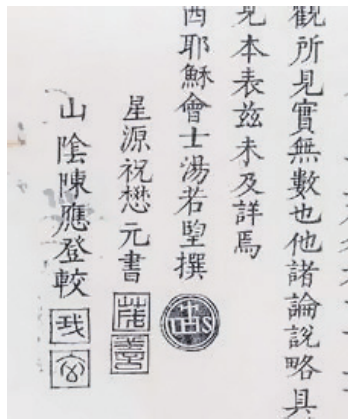 觀所見實無數也他諸論說略具
見本表茲未及詳焉
西耶穌會士湯若望撰
IHS
星源祝懋元書
山陰陳應登較